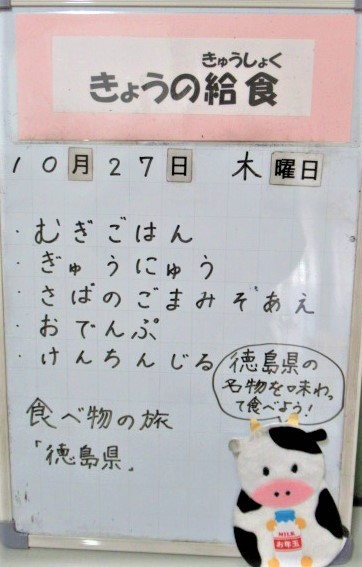 きゅうしょく
きょうの給食
10月27日 木曜日
・むぎごはん
・ぎゅうにゅう
・さばのごまみぞあえ
・おでんぷ
・けんちんじる
徳島県の
名物を味わっ
て食べよう!
食べ物の旅
「徳島県」
MILK
お年玉